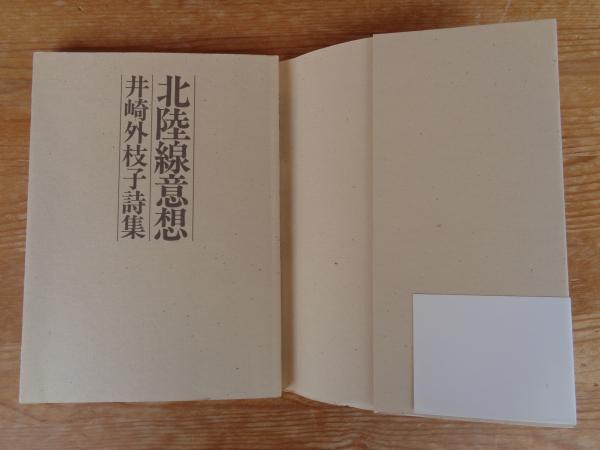 北陸線意想
井崎外枝子詩集